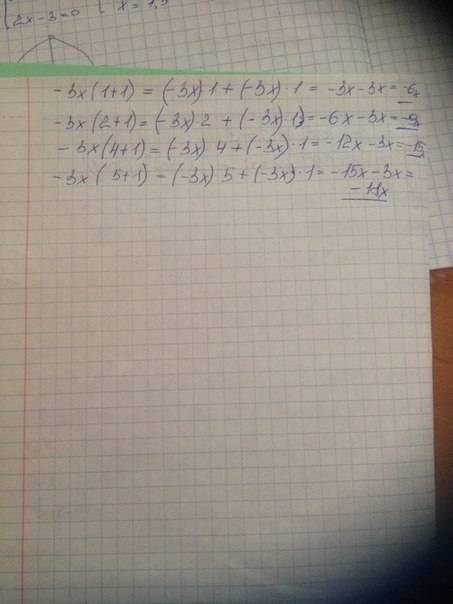 2x-3=0 x = 1,5
-3x(1+1) = (-3x)·1+(-3x)·1 = -3x-3x=-6x
-3x(2+1)=(-3x)·2 + (-3x)·1=-6x-3x=-9
-3x(4+1)=(-3x) 4+(-3x)·1=-12x-3x=-15
-3x(5+1)-(-3x) 5+(-3x)·1=-15x-3x=
-18x